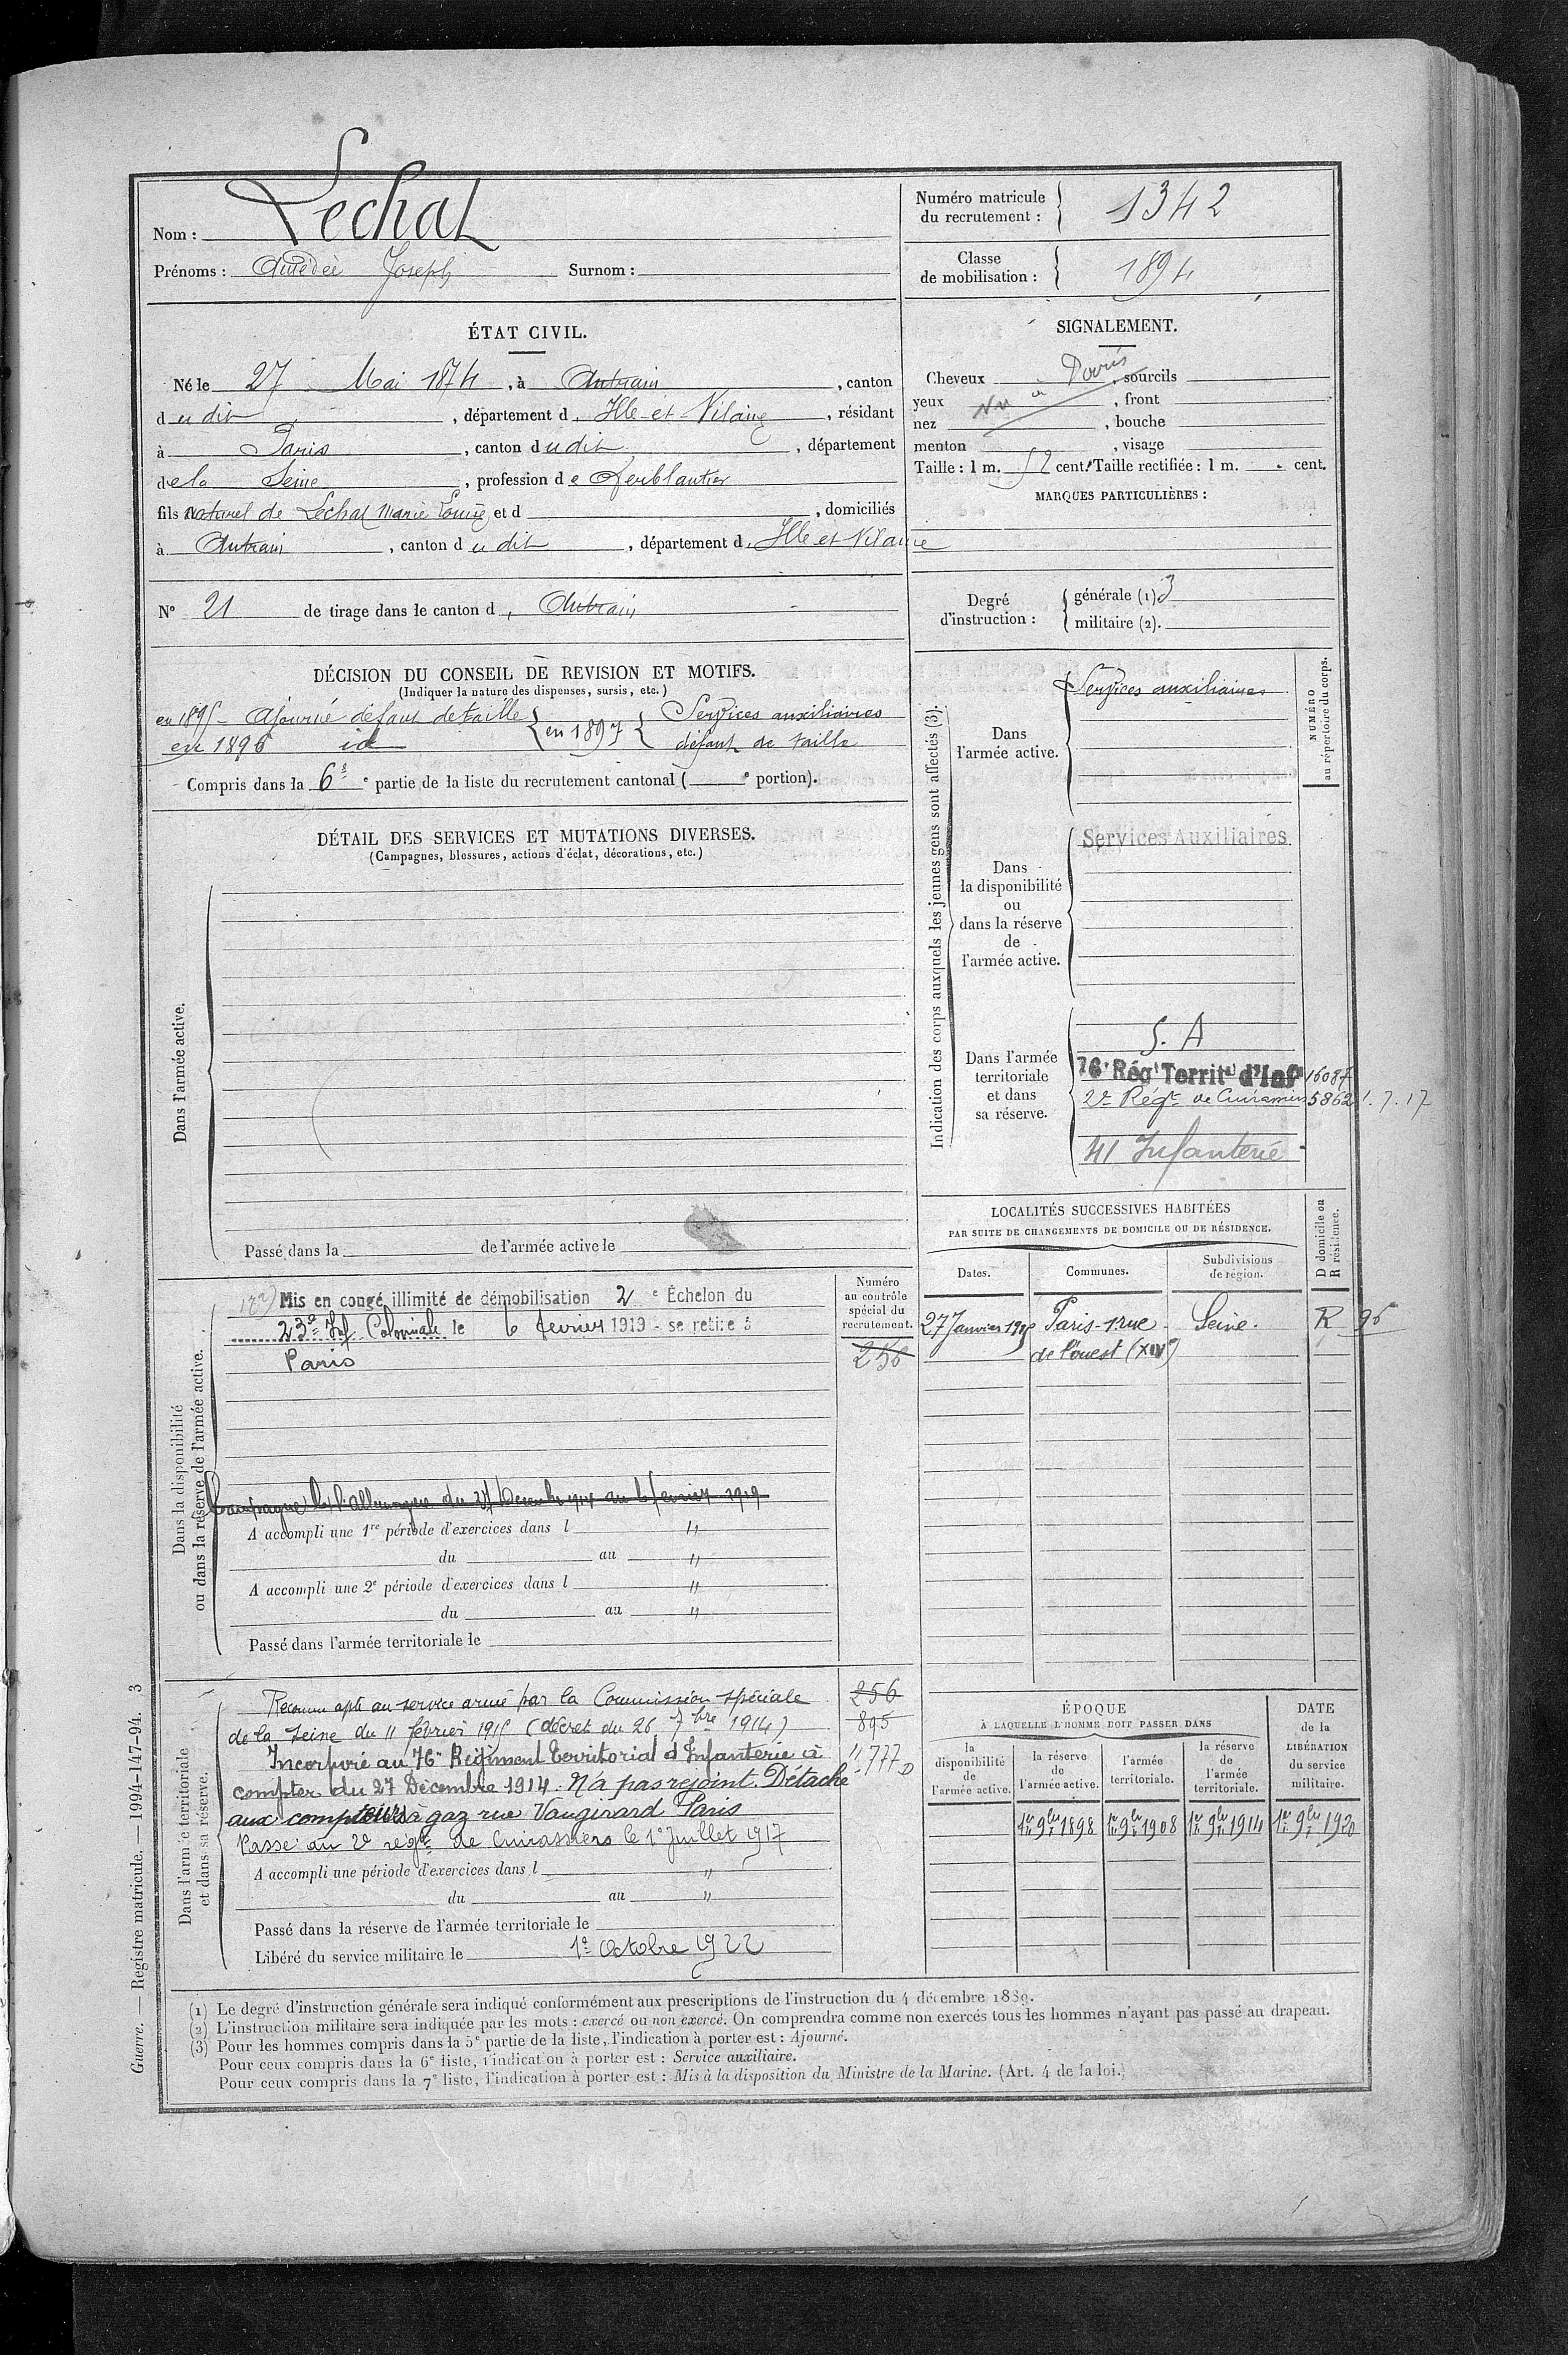 Nom : Lechat
Prénoms : Amédée Joseph Surnom :
Numéro matricule du recrutement : 1342
Classe de mobilisation : 1894
ÉTAT CIVIL.
Né le 27 Mai 1874, à Antrain, canton
dudit, département d'Ille-et-Vilaine, résidant
à Paris, canton dudit, département
de la Seine, profession de ferblantier
fils naturel de Lechat Marie Louise et d , domiciliés
à Antrain, canton dudit, département d'Ille et Vilaine
N° 21 de tirage dans le canton d'Antrain
SIGNALEMENT.
Cheveux , sourcils
yeux , front
nez , bouche
menton , visage
Vu à Paris
Taille : 1 m. 52 cent. Taille rectifiée : 1 m. cent.
MARQUES PARTICULIÈRES :
Degré d'instruction : générale (1) 3
militaire (2).
DÉCISION DU CONSEIL DE REVISION ET MOTIFS.
(Indiquer la nature des dispenses, sursis, etc.)
en 1895 - Ajourné défaut de taille
en 1896 id
en 1897 Services auxiliaires
défaut de taille
Compris dans la 6e e partie de la liste du recrutement cantonal ( e portion).
DÉTAIL DES SERVICES ET MUTATIONS DIVERSES.
(Campagnes, blessures, actions d'éclat, décorations, etc.)
Dans l'armée active.
Passé dans la de l'armée active le
Indication des corps auxquels les jeunes gens sont affectés (3).
NUMÉRO
au répertoire du corps.
Dans
l'armée active.
Services auxiliaires
Dans
la disponibilité
ou
dans la réserve
de
l'armée active.
Services Auxiliaires
Dans l'armée
territoriale
et dans
sa réserve.
S. A
76e Régt Territal d'Infie 16087
2e Régt de Cuirassiers 5862 1.7.17
41 Infanterie
LOCALITÉS SUCCESSIVES HABITÉES
PAR SUITE DE CHANGEMENTS DE DOMICILE OU DE RÉSIDENCE.
Dates.
Communes.
Subdivisions
de région.
D domicile ou
R résidence.
27 Janvier Paris-rue Seine. R 96
de l'ouest (XIV)
Dans la disponibilité
ou dans la réserve de l'armée active.
Numéro
au contrôle
spécial du
recrutement.
Mis en congé illimité de démobilisation 2 e Échelon du
23e Inf Coloniale le 6 février 1919 - se retire à
Paris
256
Campagne c/ l'Allemagne du 27 Décembre 1914 au 6 février 1919
A accompli une 1re période d'exercices dans l "
du au "
A accompli une 2e période d'exercices dans l "
du au "
Passé dans l'armée territoriale le
Dans l'armée territoriale
et dans sa réserve.
Reconnu apte au service armé par la Commission spéciale
de la Seine du 11 février 1915 (décret du 26 7bre 1914)
Incorporé au 76e Régiment territorial d'Infanterie à
compter du 27 Décembre 1914. N'a pas rejoint. Détaché
aux compteurs à gaz rue Vaugirard Paris
Passé au 2e régt de Cuirassiers le 1er Juillet 1917
256
895
11777 D
A accompli une période d'exercices dans l "
du au "
Passé dans la réserve de l'armée territoriale le
Libéré du service militaire le 1er Octobre 1922
ÉPOQUE
À LAQUELLE L'HOMME DOIT PASSER DANS
la
disponibilité
de
l'armée active.
la réserve
de
l'armée active.
l'armée
territoriale.
la réserve
de
l'armée
territoriale.
DATE
de la
LIBÉRATION
du service
militaire.
1er 9bre 1898 1er 9bre 1908 1er 9bre 1914 1er 9bre 1920
(1) Le degré d'instruction générale sera indiqué conformément aux prescriptions de l'instruction du 4 décembre 1889.
(2) L'instruction militaire sera indiquée par les mots : exercé ou non exercé. On comprendra comme non exercés tous les hommes n'ayant pas passé au drapeau.
(3) Pour les hommes compris dans la 5e partie de la liste, l'indication à porter est : Ajourné.
Pour ceux compris dans la 6e liste, l'indication à porter est : Service auxiliaire.
Pour ceux compris dans la 7e liste, l'indication à porter est : Mis à la disposition du Ministre de la Marine. (Art. 4 de la loi.)
Guerre. — Registre matricule. — 1994-147-94. 3